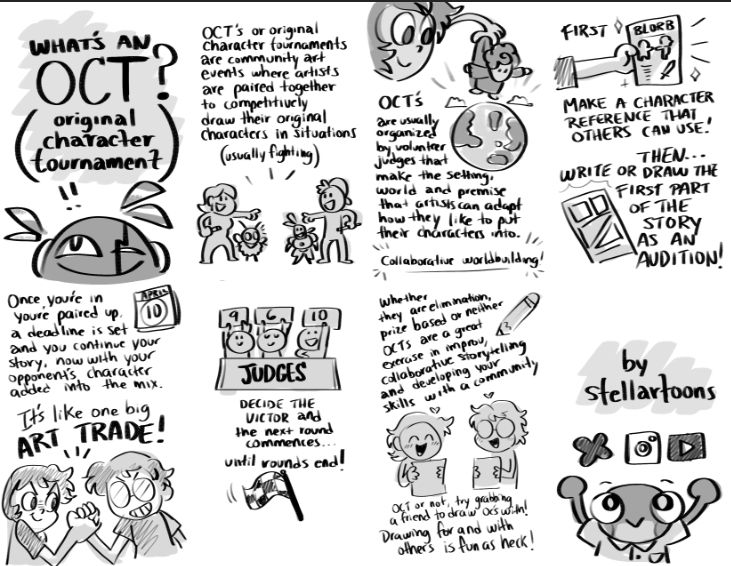 WHAT'S AN
OCT?
(original
character
tournament)
!!
OCT's or original
character tournaments
are community art
events where artists
are paired together
to competitively
draw their original
characters in situations
(usually fighting)
OCT's
are usually
organized
by volunter
judges that
make the setting,
world and premise
that artists can adapt
how they like to put
their characters into.
Collaborative worldbuilding!
FIRST
BLORB
MAKE A CHARACTER
REFERENCE THAT
OTHERS CAN USE!
THEN...
WRITE OR DRAW THE
FIRST PART
OF THE
STORY
AS AN
AUDITION!
Once you're in
you're paired up,
a deadline is set
and you continue your
story, now with your
opponent's character
added into the mix.
APRIL
10
It's like one big
ART TRADE!
9 6 10
JUDGES
DECIDE THE
VICTOR and
the next round
commences...
until rounds end!
Whether
they are elimination,
prize based or neither
OCTs are a great
exercise in improv,
collaborative storytelling
and developing your
skills with a community
OCT or not, try grabbing
a friend to draw OCs with!
Drawing for and with
others is fun as heck!
by
stellartoons